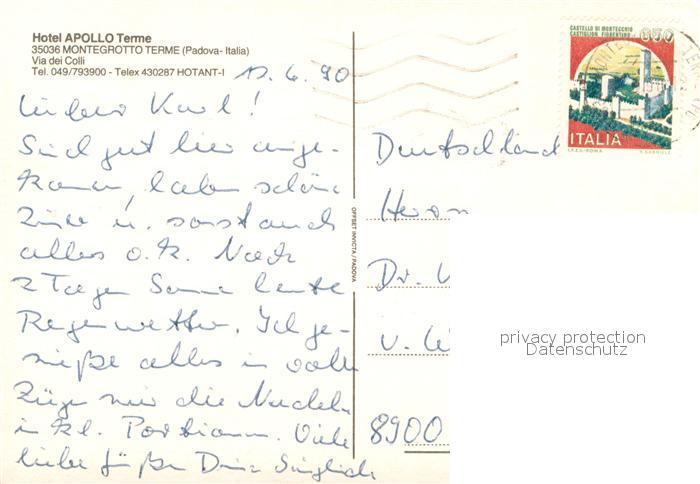 Hotel APOLLO Terme
35036 MONTEGROTTO TERME (Padova- Italia)
Via dei Colli
Tel. 049/793900 - Telex 430287 HOTANT-I
6.90
Lieber Karl!
Sind gut hier ange-
kommen, haben schöne
Zimmer u. sonst auch
alles o.k. Nach
2 Tagen Sonne heute
Regenwetter. Ich ge-
nieße alles in vollen
Zügen nur die Nudeln
in kl. Portionen. Viele
liebe Grüße Deine
CASTELLO DI MONTECCHIO
CASTIGLION FIORENTINO
ITALIA
I.P.Z.S.-ROMA
OFFSET INVICTA / PADOVA
Deutschland
Herrn
Dr.
v.
8900
privacy protection
Datenschutz